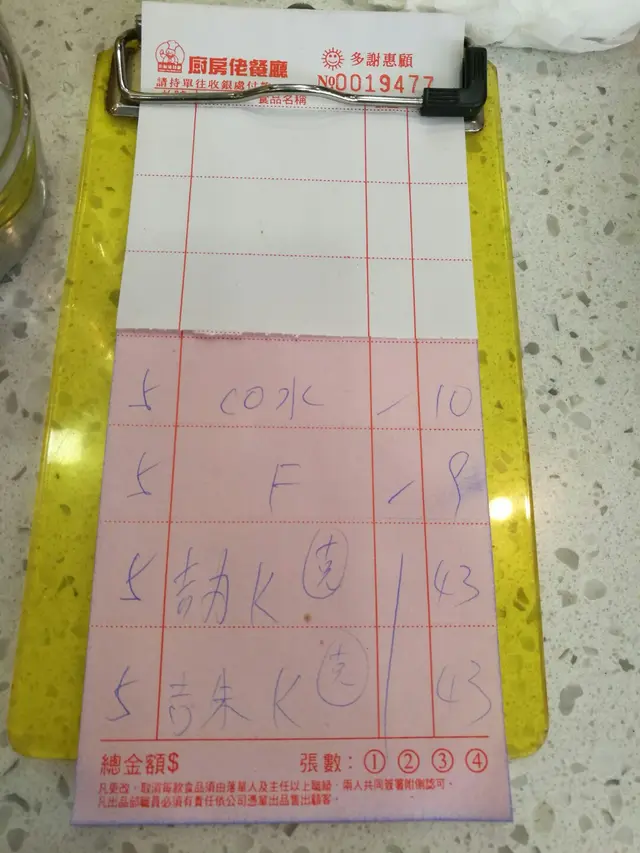 廚房佬餐廳
多謝惠顧
請持單往收銀處付
No0019477
食品名稱
5 CO水 / 10
5 F / 9
5 吉力 K 克 43
5 吉朱 K 克 43
總金額$ 張數：① ② ③ ④
凡更改、取消每款食品須由落單人及主任以上職級，兩人共同簽署附側認可。
凡出品部職員必須有責任依公司憑單出品售出顧客。